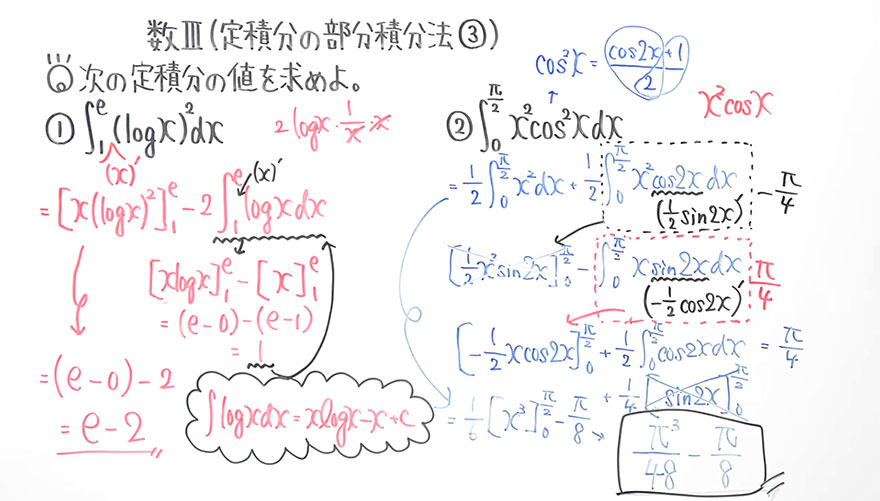 数Ⅲ(定積分の部分積分法③)
次の定積分の値を求めよ。
① ∫₁^e (logx)²dx
(x)′
2logx・1/x・x
= [x(logx)²]₁^e − 2∫₁^e logxdx
(x)′
[xlogx]₁^e − [x]₁^e
= (e−0)−(e−1)
= 1
= (e−0)−2
= e−2
∫logxdx = xlogx−x+c
cos²x = (cos2x+1)/2
x²cosx
② ∫₀^(π/2) x²cos²xdx
= 1/2∫₀^(π/2) x²dx + 1/2∫₀^(π/2) x²cos2xdx
(1/2 sin2x)′
−π/4
[1/2 x²sin2x]₀^(π/2) − ∫₀^(π/2) xsin2xdx
(−1/2 cos2x)′
π/4
[−1/2 xcos2x]₀^(π/2) + 1/2∫₀^(π/2) cos2xdx = π/4
+ 1/4[sin2x]₀^(π/2)
= 1/6[x³]₀^(π/2) − π/8
π³/48 − π/8